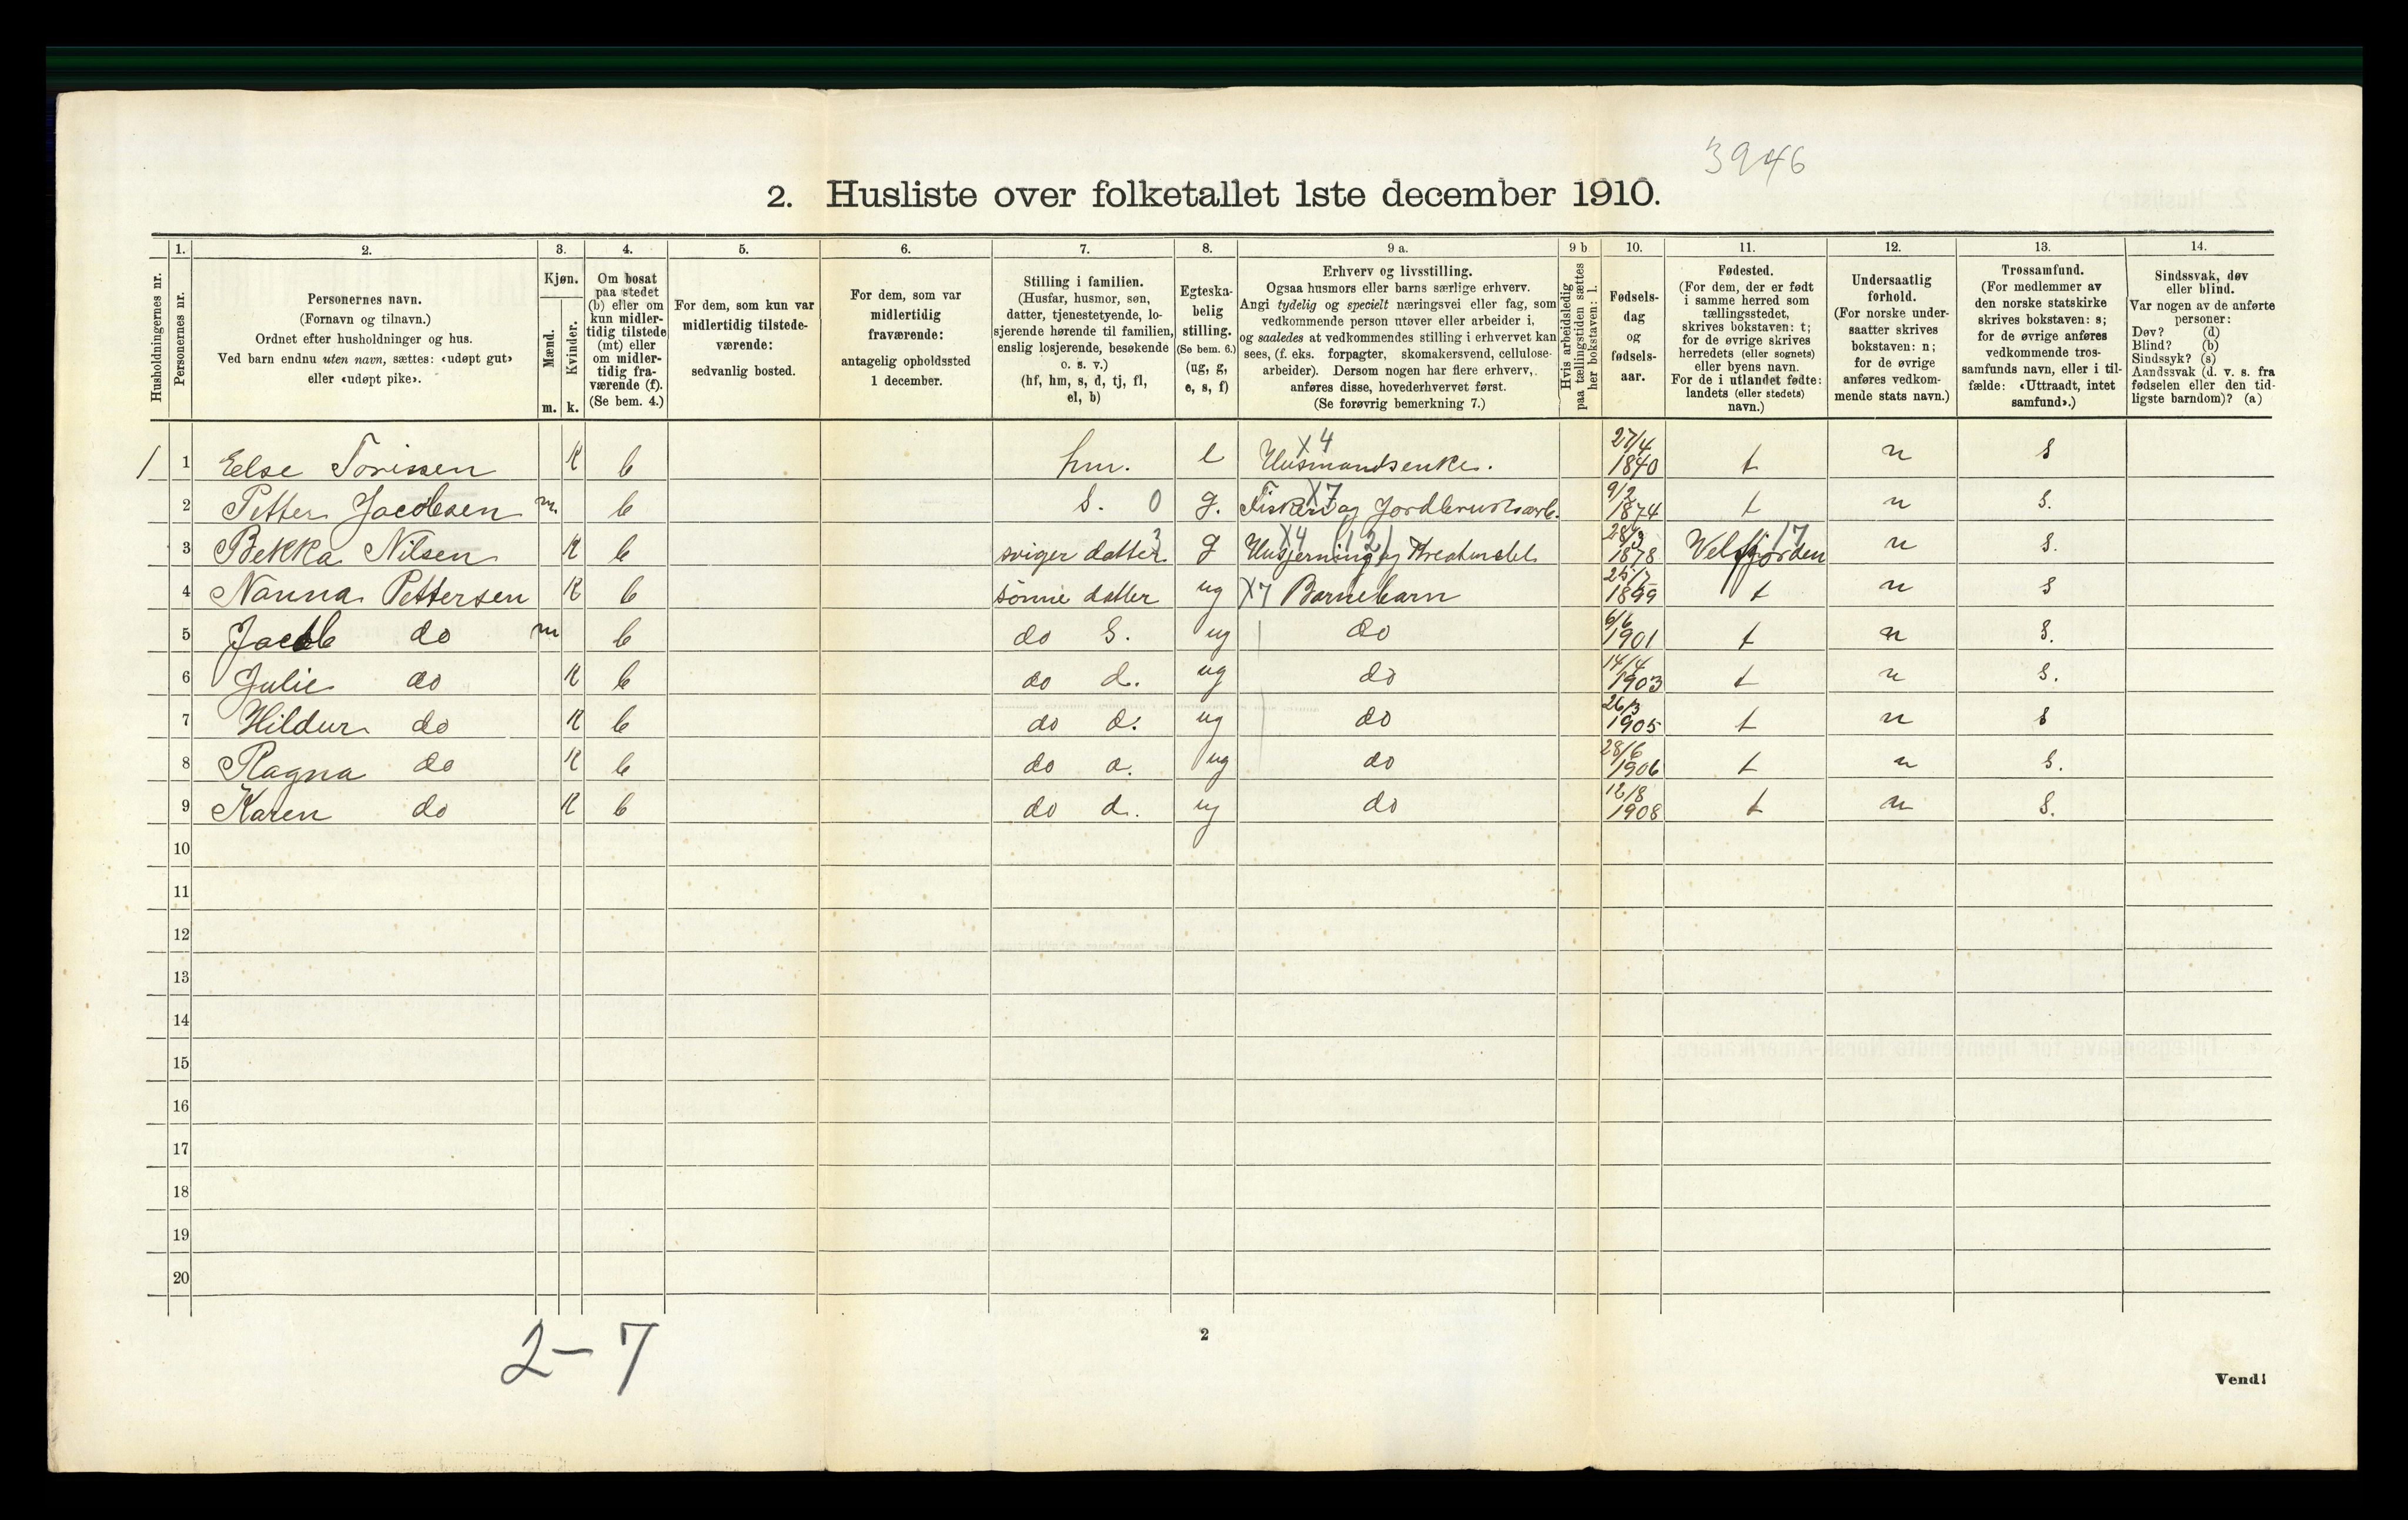 3946
2. Husliste over folketallet 1ste december 1910.
Husholdningernes nr.
1. Personernes nr.
2. Personernes navn.
(Fornavn og tilnavn.)
Ordnet efter husholdninger og hus.
Ved barn endnu uten navn, sættes: «udøpt gut»
eller «udøpt pike».
3. Kjøn.
Mænd. Kvinder.
m. k.
4. Om bosat
paa stedet
(b) eller om
kun midler-
tidig tilstede
(mt) eller
om midler-
tidig fra-
værende (f).
(Se bem. 4.)
5. For dem, som kun var
midlertidig tilstede-
værende:
sedvanlig bosted.
6. For dem, som var
midlertidig
fraværende:
antagelig opholdssted
1 december.
7. Stilling i familien.
(Husfar, husmor, søn,
datter, tjenestetyende, lo-
sjerende hørende til familien,
enslig losjerende, besøkende
o. s. v.)
(hf, hm, s, d, tj, fl,
el, b)
8. Egteska-
belig
stilling.
(Se bem. 6.)
(ug, g,
e, s, f)
9 a. Erhverv og livsstilling.
Ogsaa husmors eller barns særlige erhverv.
Angi tydelig og specielt næringsvei eller fag, som
vedkommende person utøver eller arbeider i,
og saaledes at vedkommendes stilling i erhvervet kan
sees, (f. eks. forpagter, skomakersvend, cellulose-
arbeider). Dersom nogen har flere erhverv,
anføres disse, hovederhvervet først.
(Se forøvrig bemerkning 7.)
9 b. Hvis arbeidsledig
paa tællingstiden sættes
her bokstaven: l.
10. Fødsels-
dag
og
fødsels-
aar.
11. Fødested.
(For dem, der er født
i samme herred som
tællingsstedet,
skrives bokstaven: t;
for de øvrige skrives
herredets (eller sognets)
eller byens navn.
For de i utlandet fødte:
landets (eller stedets)
navn.)
12. Undersaatlig
forhold.
(For norske under-
saatter skrives
bokstaven: n;
for de øvrige
anføres vedkom-
mende stats navn.)
13. Trossamfund.
(For medlemmer av
den norske statskirke
skrives bokstaven: s;
for de øvrige anføres
vedkommende tros-
samfunds navn, eller i til-
fælde: «Uttraadt, intet
samfund».)
14. Sindssvak, døv
eller blind.
Var nogen av de anførte
personer:
Døv? (d)
Blind? (b)
Sindssyk? (s)
Aandssvak (d. v. s. fra
fødselen eller den tid-
ligste barndom)? (a)
1 1 Else Torissen K b hm. e X4 Husmandsenke. 27/4 1840 t n s
2 Petter Jacobsen m b s. 0 g. X7 Fisker og Jordbruksarb. 9/2 1874 t n s.
3 Bekka Nilsen K b sviger datter 3 g X4 121 Husgjerning og Kreaturstel 28/3 1878 Velfjorden 17 n s.
4 Nanna Pettersen K b sønne datter ug X7 Barnebarn 1899 t n s
5 Jacob do m b do s. ug do 6/6 1901 t n s.
6 Julie do K b do d. ug do 14/4 1903 t n s.
7 Hildur do K b do d. ug do 26/3 1905 t n s
8 Ragna do K b do d. ug do 28/6 1906 t n s.
9 Karen do K b do d. ug do 12/8 1908 t n s.
10
11
12
13
14
15
16
17
18
19
20
2-7
2
Vend!